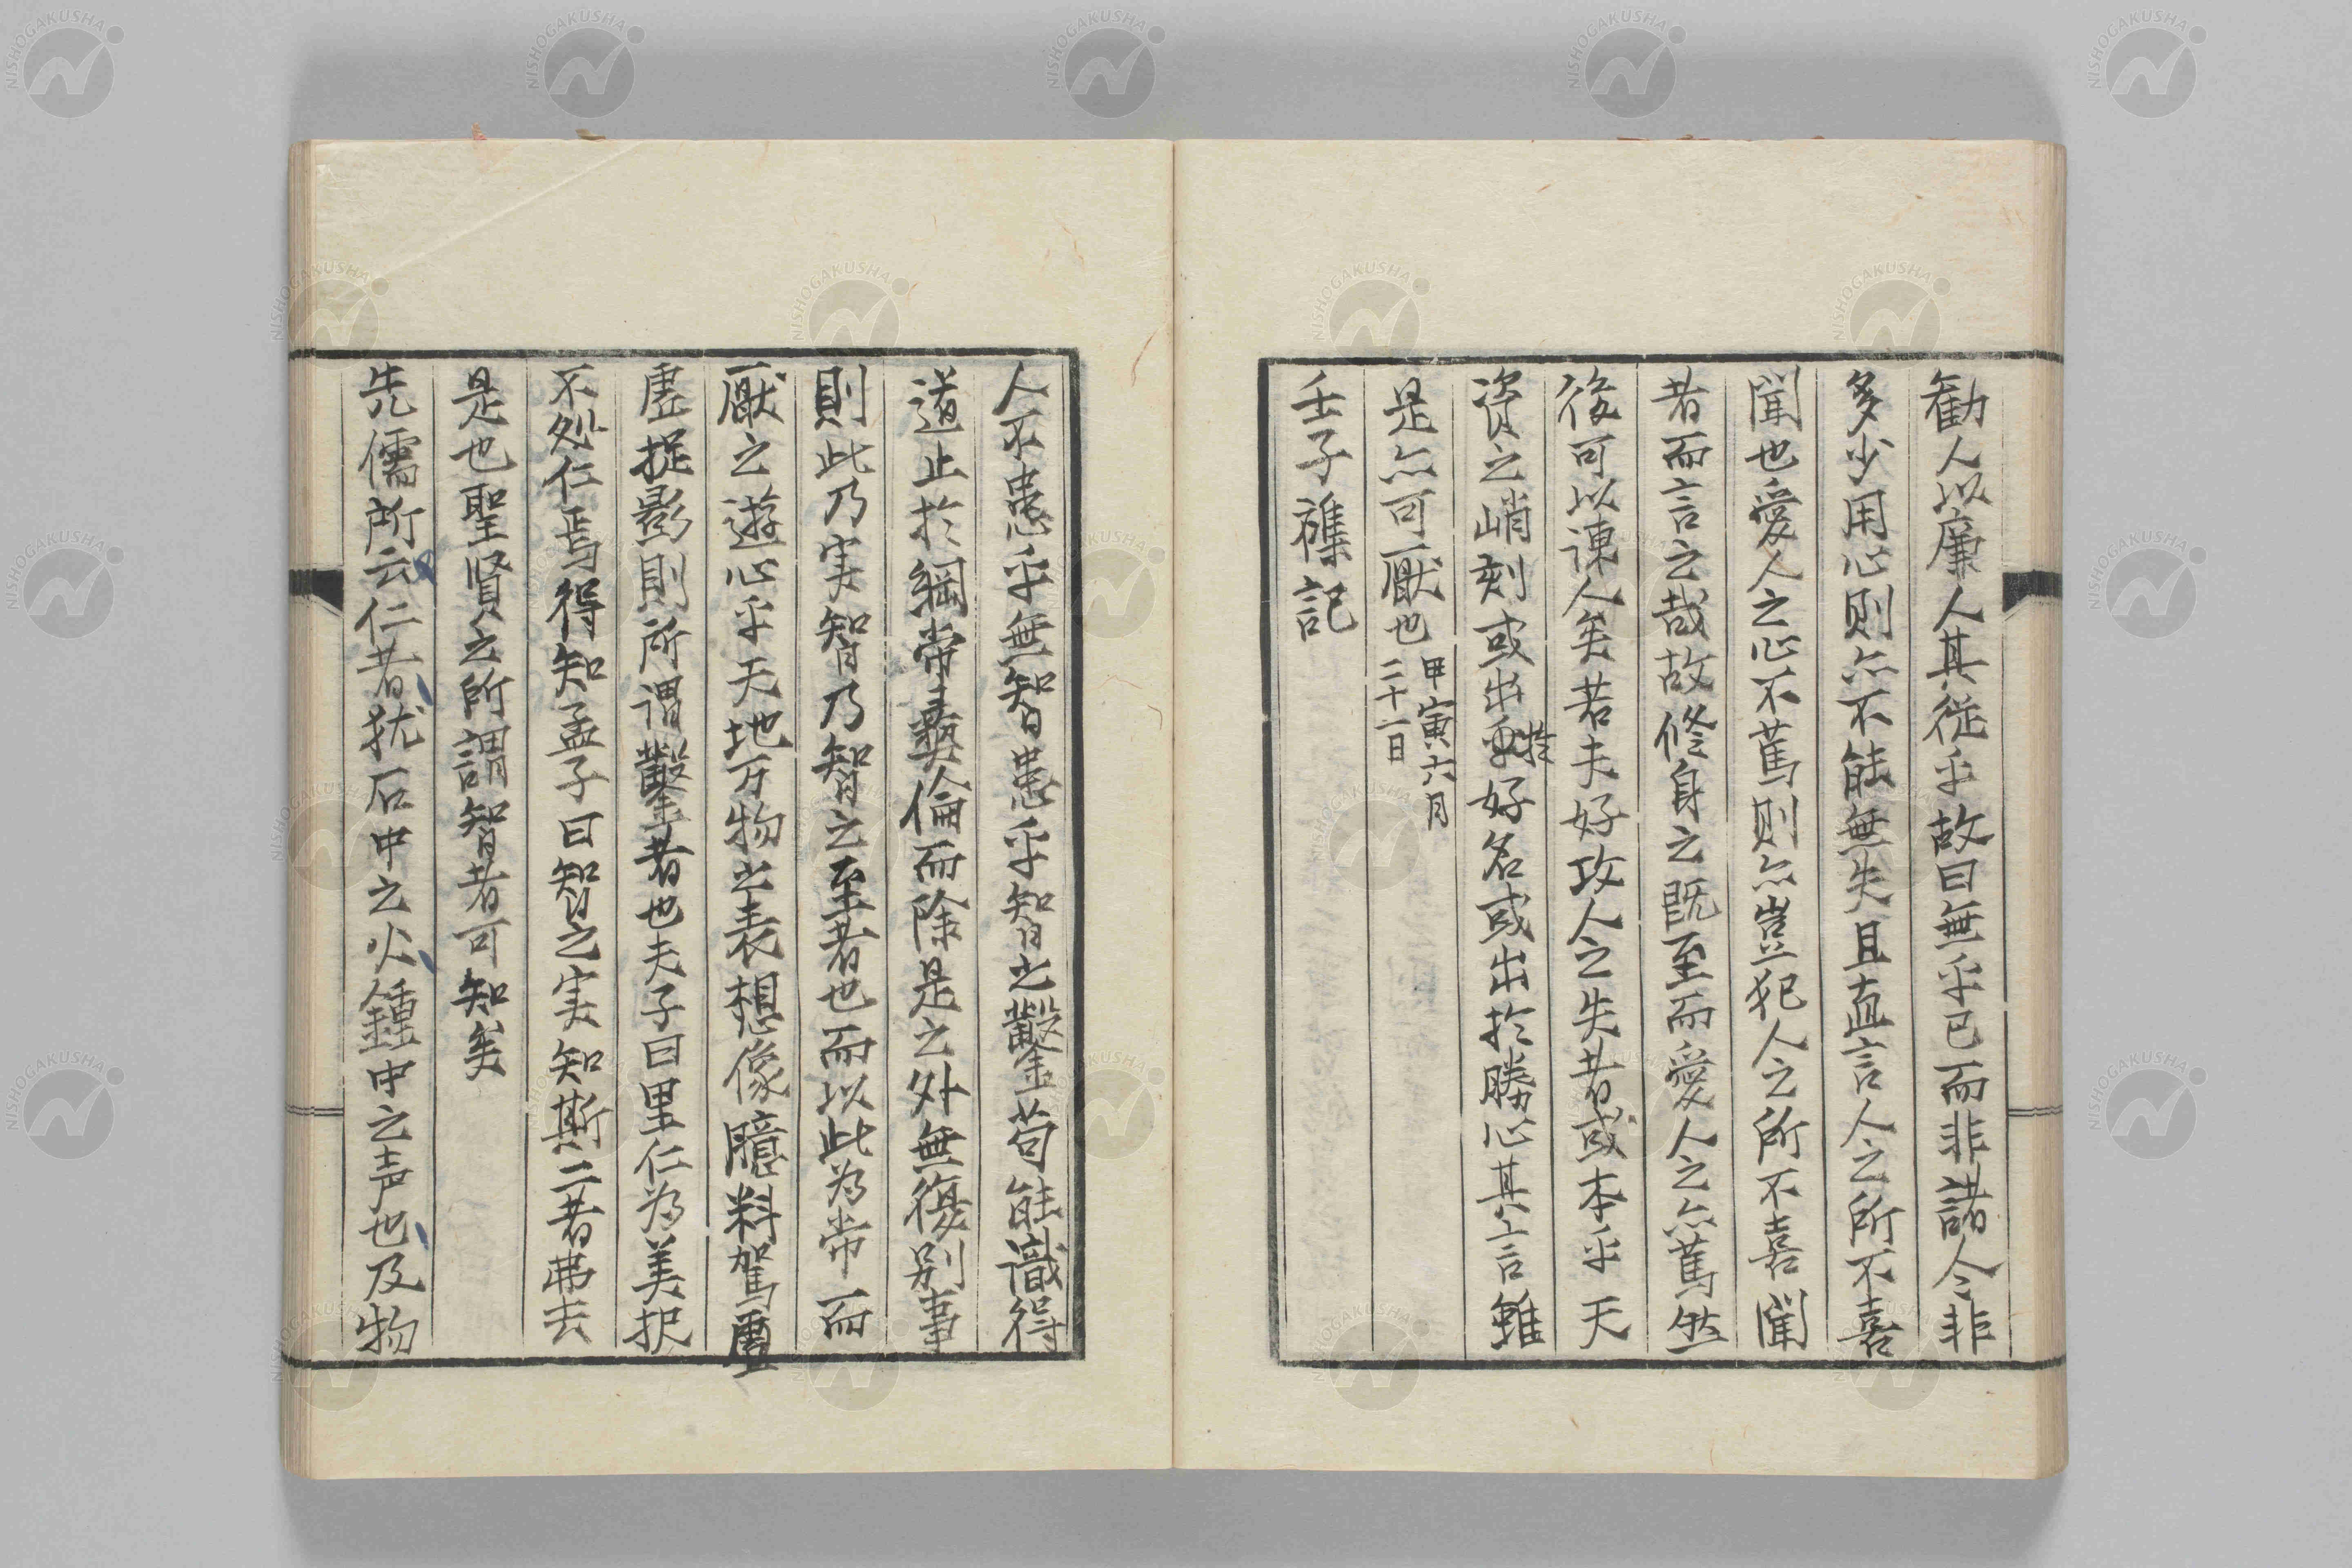 勧人以廉人其從乎故曰無乎已而非諸人非
多少用心則亦不能無失且直言人之所不喜
聞也愛人之心不篤則亦豈犯人之所不喜聞
者而言之哉故修身之既至而愛人之亦篤然
後可以諌人矣若夫好攻人之失者或本乎天
資之峭刻或出乎好名或出於勝心其言雖
於
是亦可厭也
甲寅六月
二十一日
壬子襍記
人不患乎無智患乎知之鑿苟能識得
道止於綱常彝倫而除是之外無復別事
則此乃実智乃智之至者也而以此為常而
厭之遊心乎天地万物之表想像臆料駕
虚捉影則所謂鑿者也夫子曰里仁為美択
不処仁焉得知孟子曰智之実知斯二者弗去
是也聖賢之所謂智者可知矣
先儒所云仁者犹石中之火鍾中之声也及物